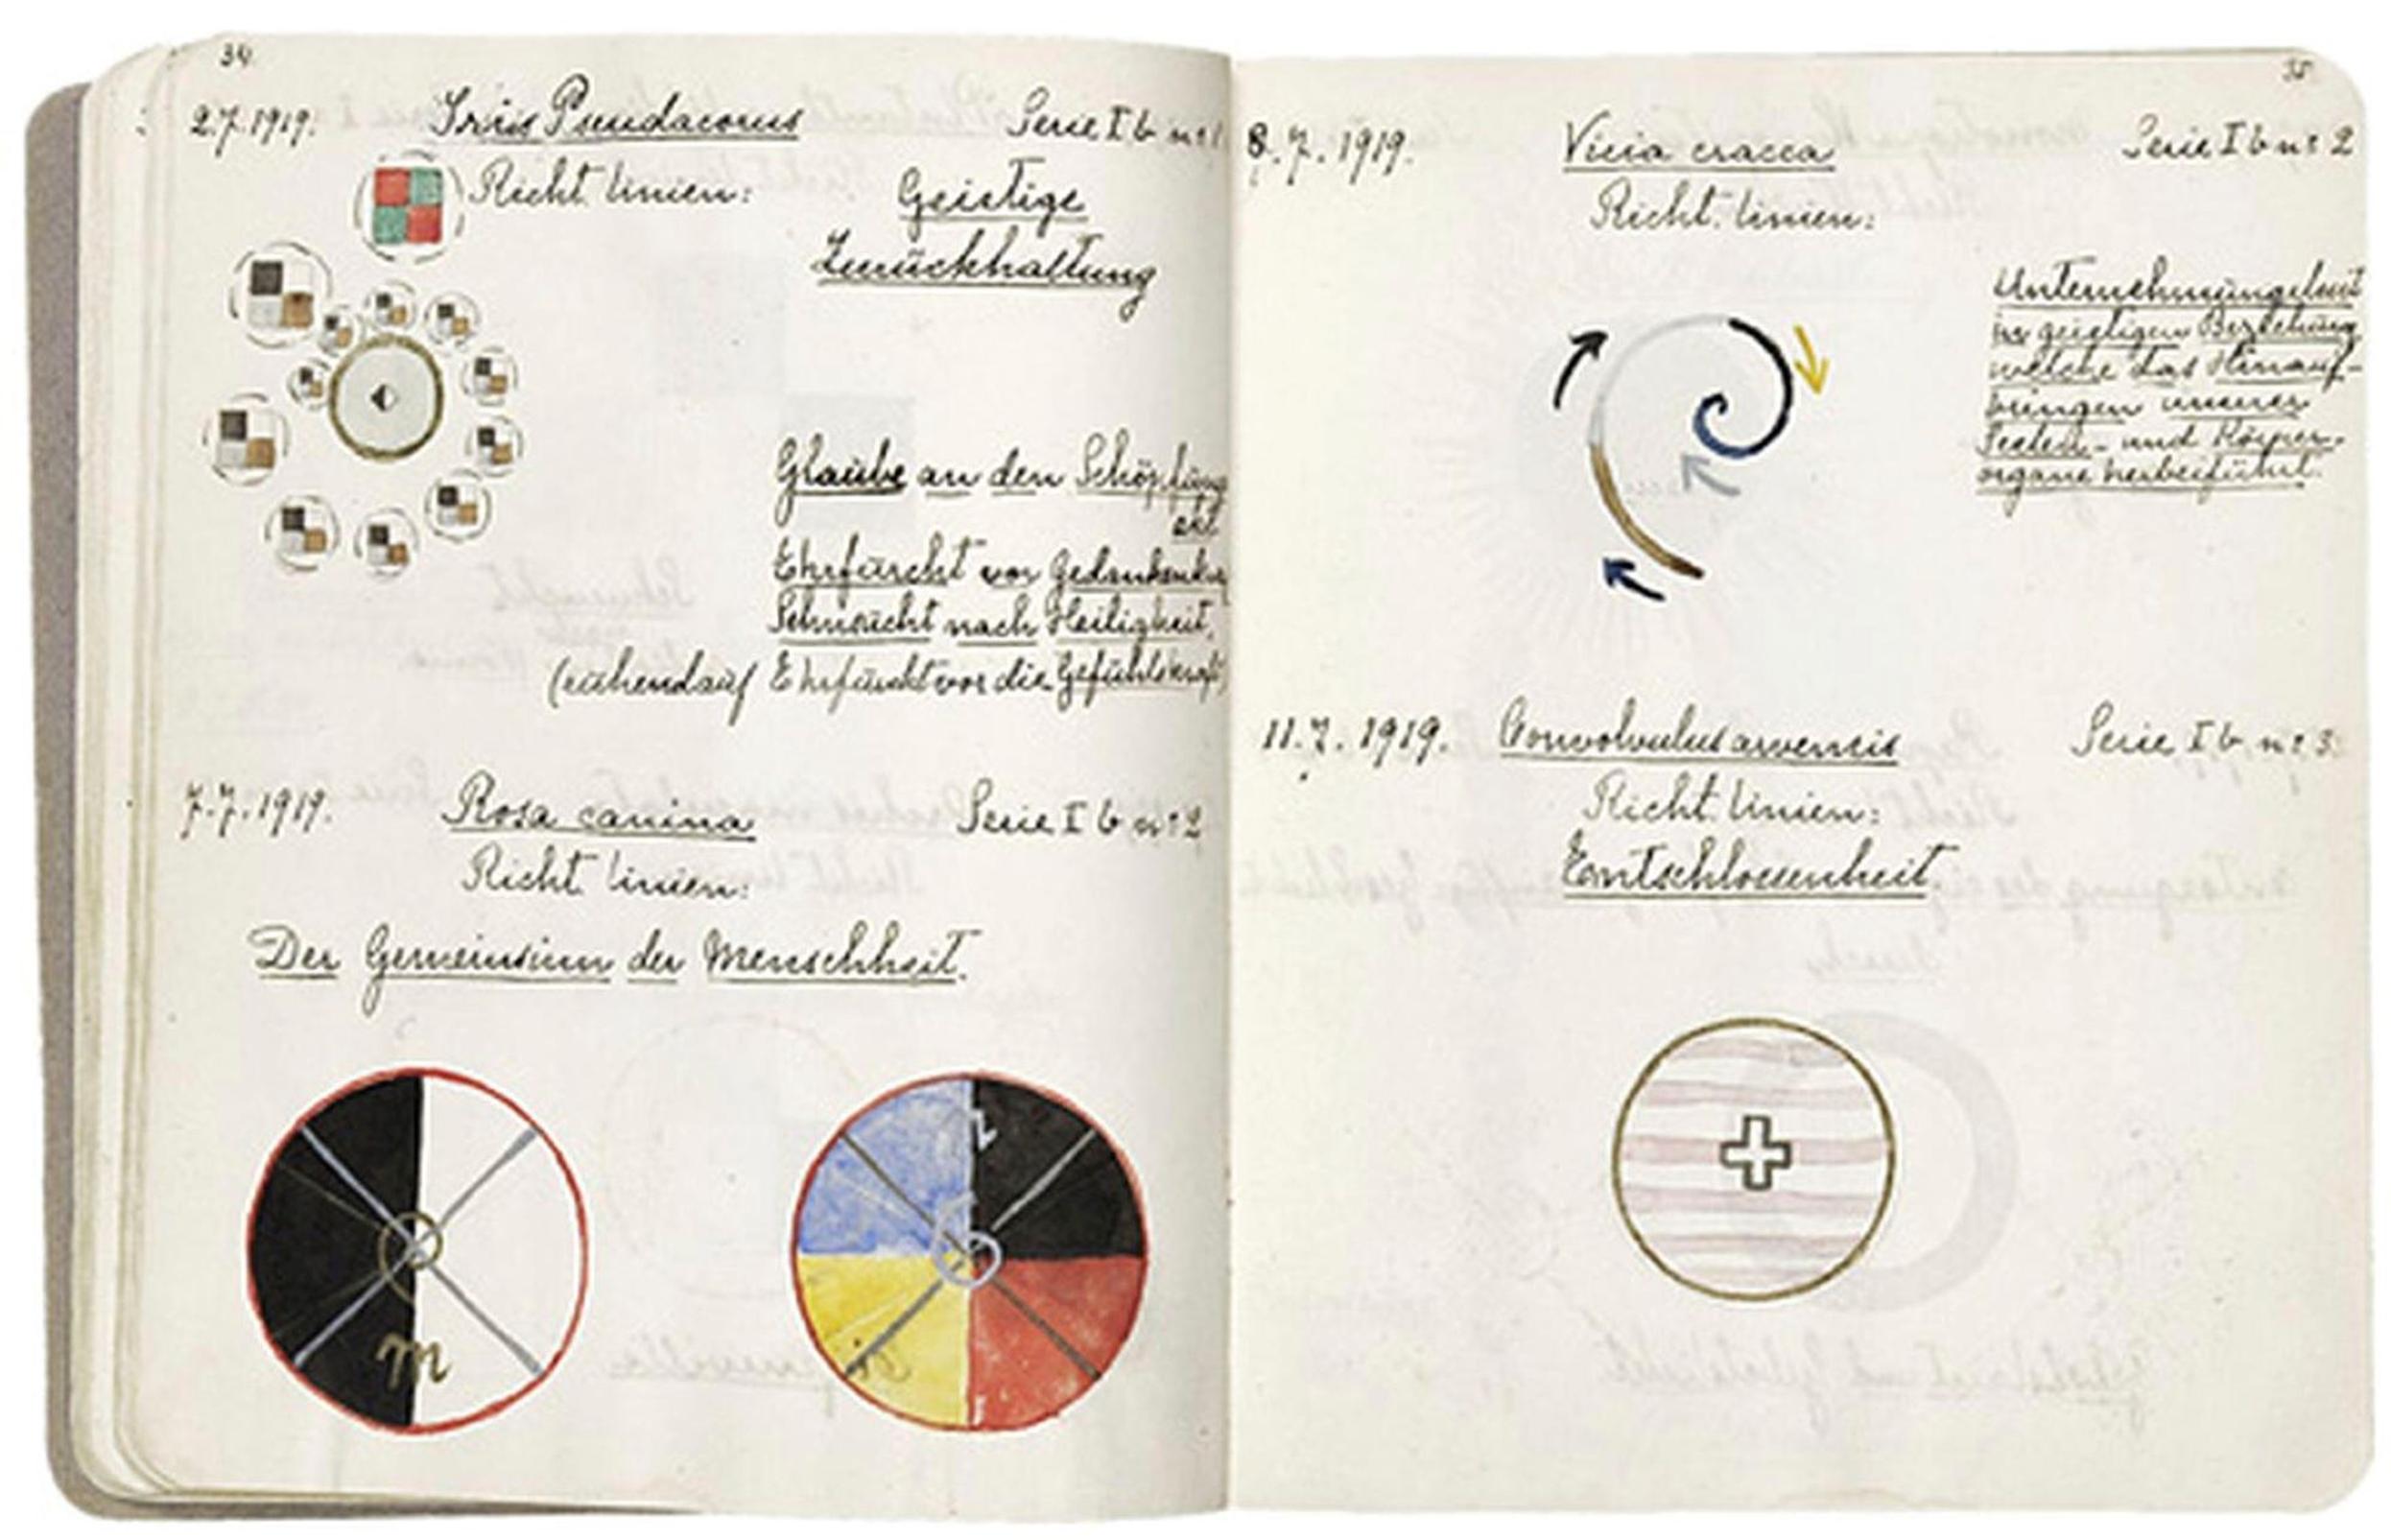 34.
2.7.1919. Iris Pseudacorus Serie I b nr 1
Richt linien: Geistige
Zurückhaltung
Glaube an den Schöpfungs
Ehrfurcht vor Gedanken
Sehnsucht nach Heiligkeit,
(ruhend auf Ehrfurcht vor die Gefühlskraft)
7.7.1919. Rosa canina Serie I b nr 2
Richt linien:
Der Gemeinsinn der Menschheit.
m
35.
8.7.1919. Vicia cracca Serie I b nr 2
Richt. linien:
Unternehmungslust
in geistigen Beziehung
welche das Hinauf-
bringen unserer
Seelen- und Körper-
organe herbeiführt.
11.7.1919. Convolvulus arvensis Serie I b nr 3.
Richt linien:
Entschlossenheit